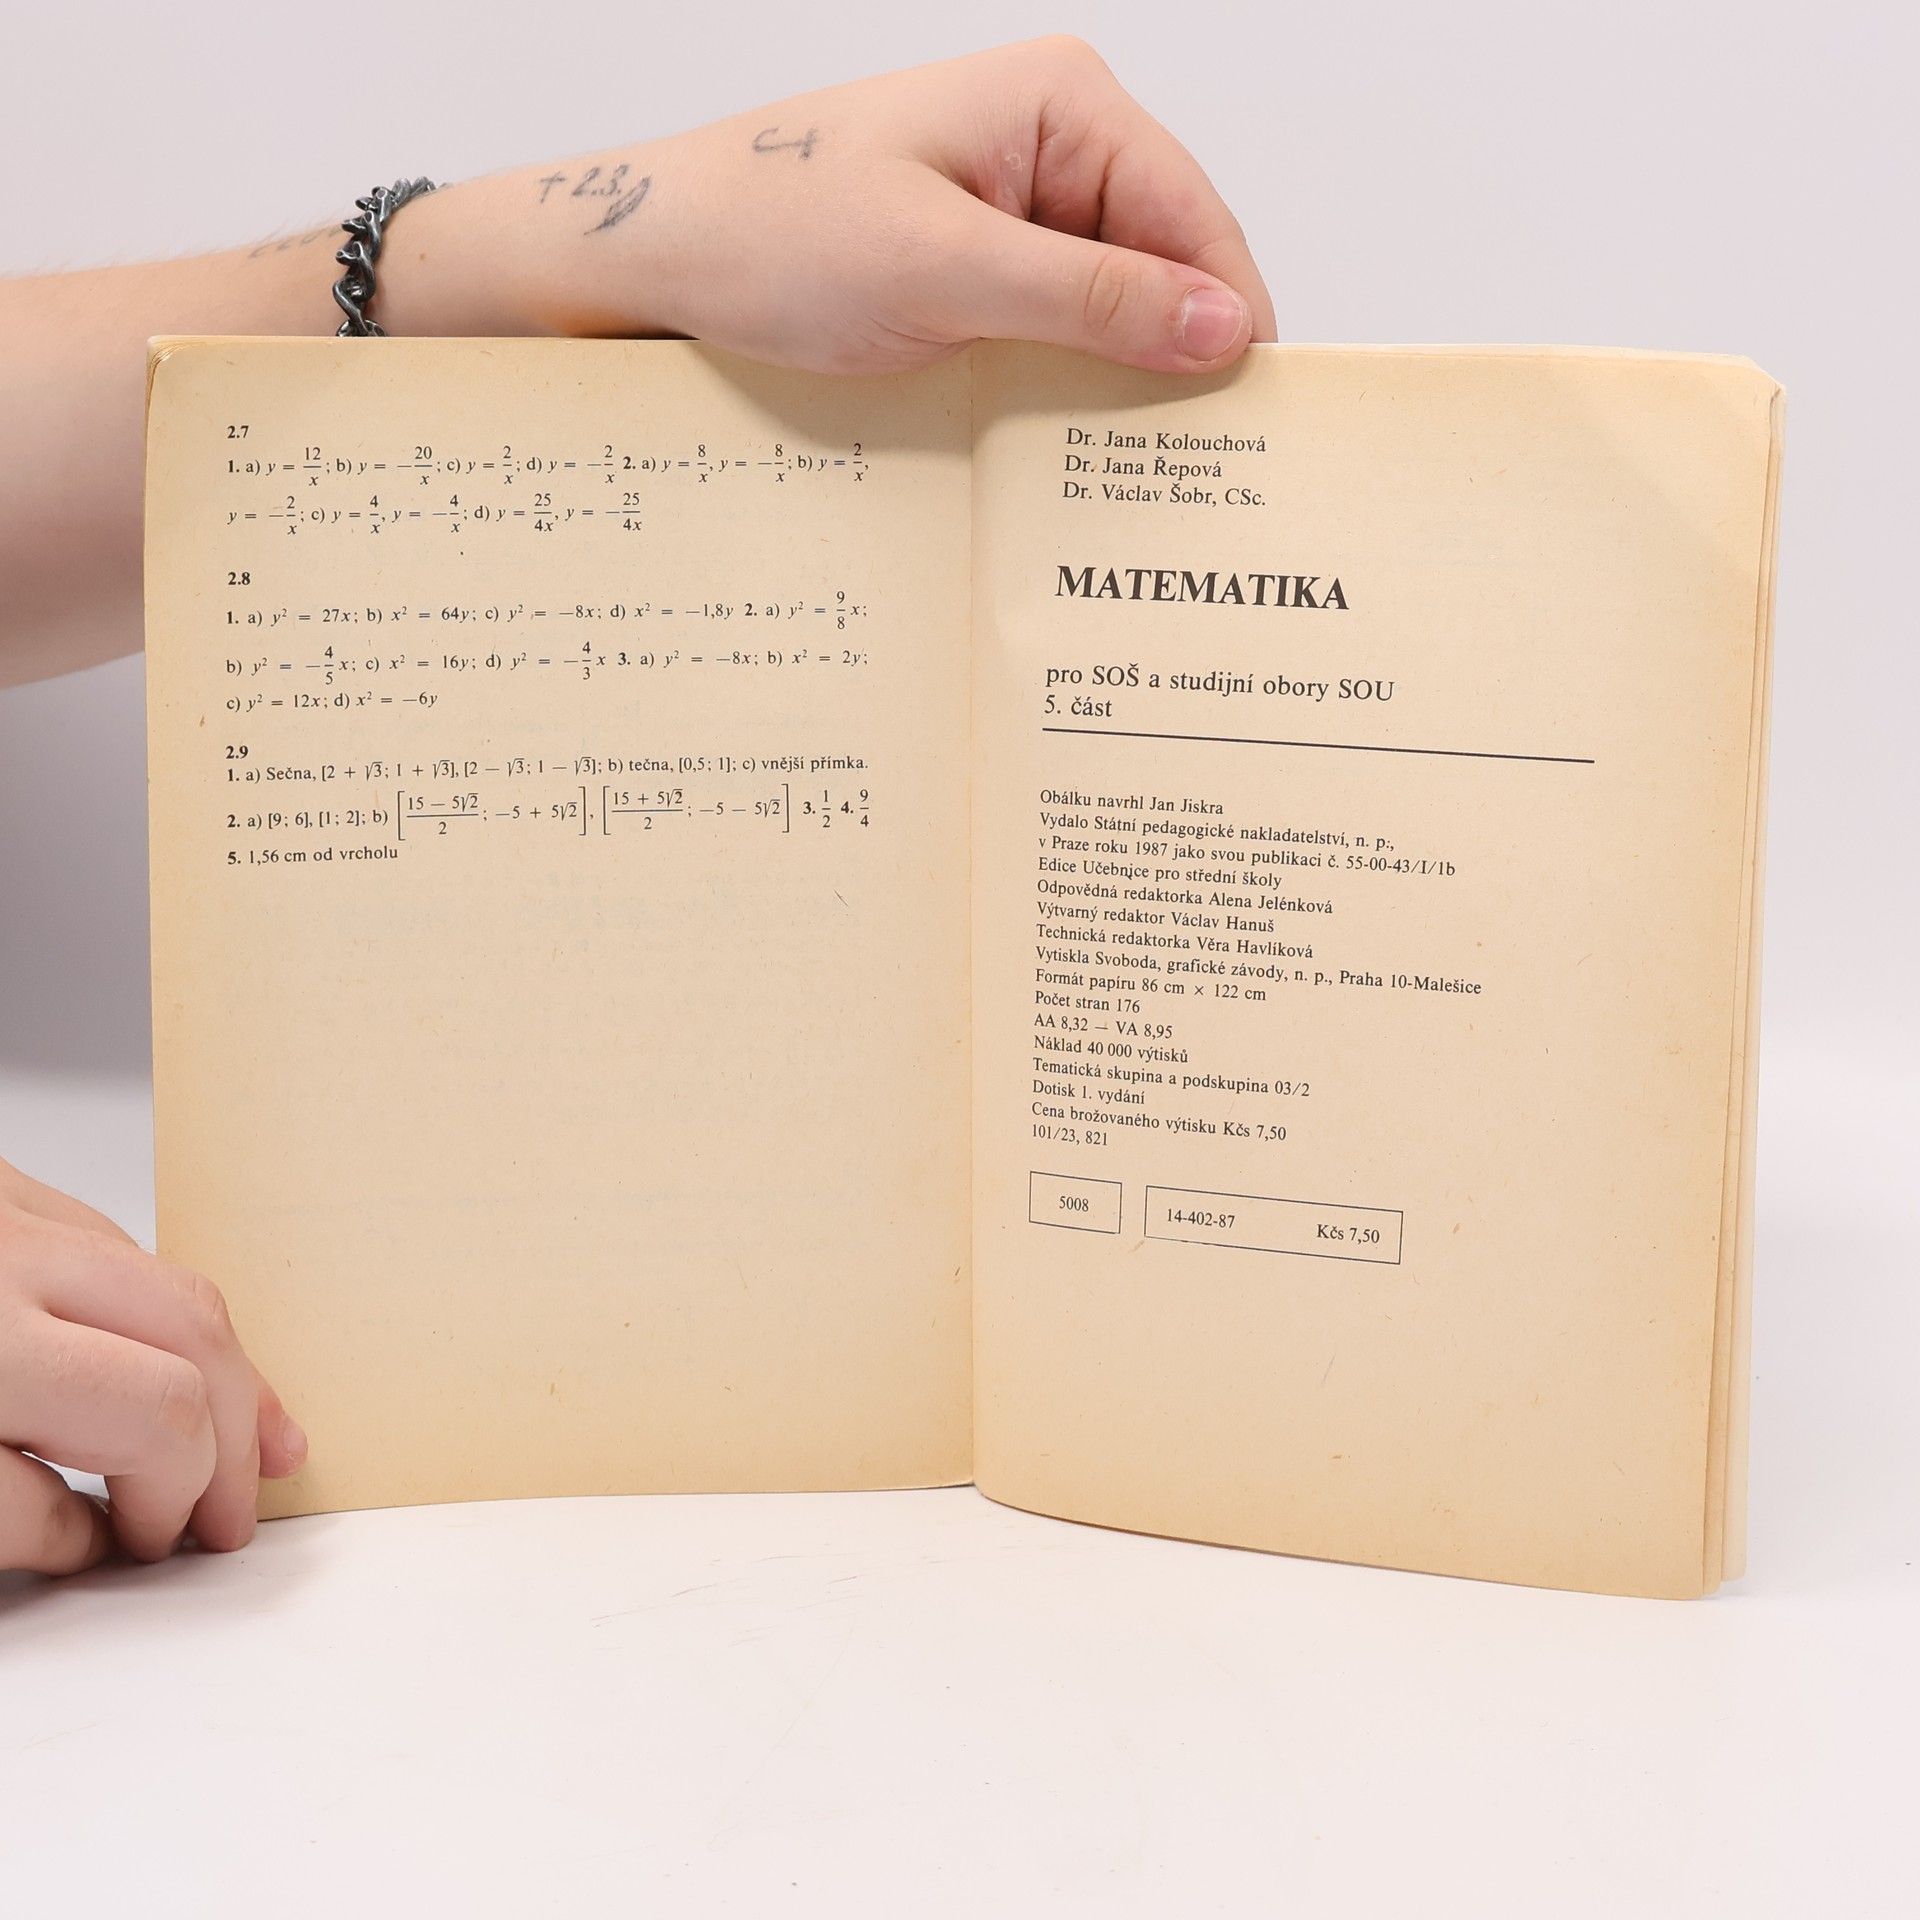 + 2.3.
2.7
1. a) y = 12/x; b) y = −20/x; c) y = 2/x; d) y = −2/x 2. a) y = 8/x, y = −8/x; b) y = 2/x,
y = −2/x; c) y = 4/x, y = −4/x; d) y = 25/4x, y = −25/4x
2.8
1. a) y² = 27x; b) x² = 64y; c) y² = −8x; d) x² = −1,8y 2. a) y² = 9/8 x;
b) y² = −4/5 x; c) x² = 16y; d) y² = −4/3 x 3. a) y² = −8x; b) x² = 2y;
c) y² = 12x; d) x² = −6y
2.9
1. a) Sečna, [2 + √3; 1 + √3], [2 − √3; 1 − √3]; b) tečna, [0,5; 1]; c) vnější přímka.
2. a) [9; 6], [1; 2]; b) [(15 − 5√2)/2; −5 + 5√2], [(15 + 5√2)/2; −5 − 5√2] 3. 1/2 4. 9/4
5. 1,56 cm od vrcholu
Dr. Jana Kolouchová
Dr. Jana Řepová
Dr. Václav Šobr, CSc.
MATEMATIKA
pro SOŠ a studijní obory SOU
5. část
Obálku navrhl Jan Jiskra
Vydalo Státní pedagogické nakladatelství, n. p.,
v Praze roku 1987 jako svou publikaci č. 55-00-43/I/1b
Edice Učebnice pro střední školy
Odpovědná redaktorka Alena Jelénková
Výtvarný redaktor Václav Hanuš
Technická redaktorka Věra Havlíková
Vytiskla Svoboda, grafické závody, n. p., Praha 10-Malešice
Formát papíru 86 cm × 122 cm
Počet stran 176
AA 8,32 — VA 8,95
Náklad 40 000 výtisků
Tematická skupina a podskupina 03/2
Dotisk 1. vydání
Cena brožovaného výtisku Kčs 7,50
101/23, 821
5008
14-402-87 Kčs 7,50